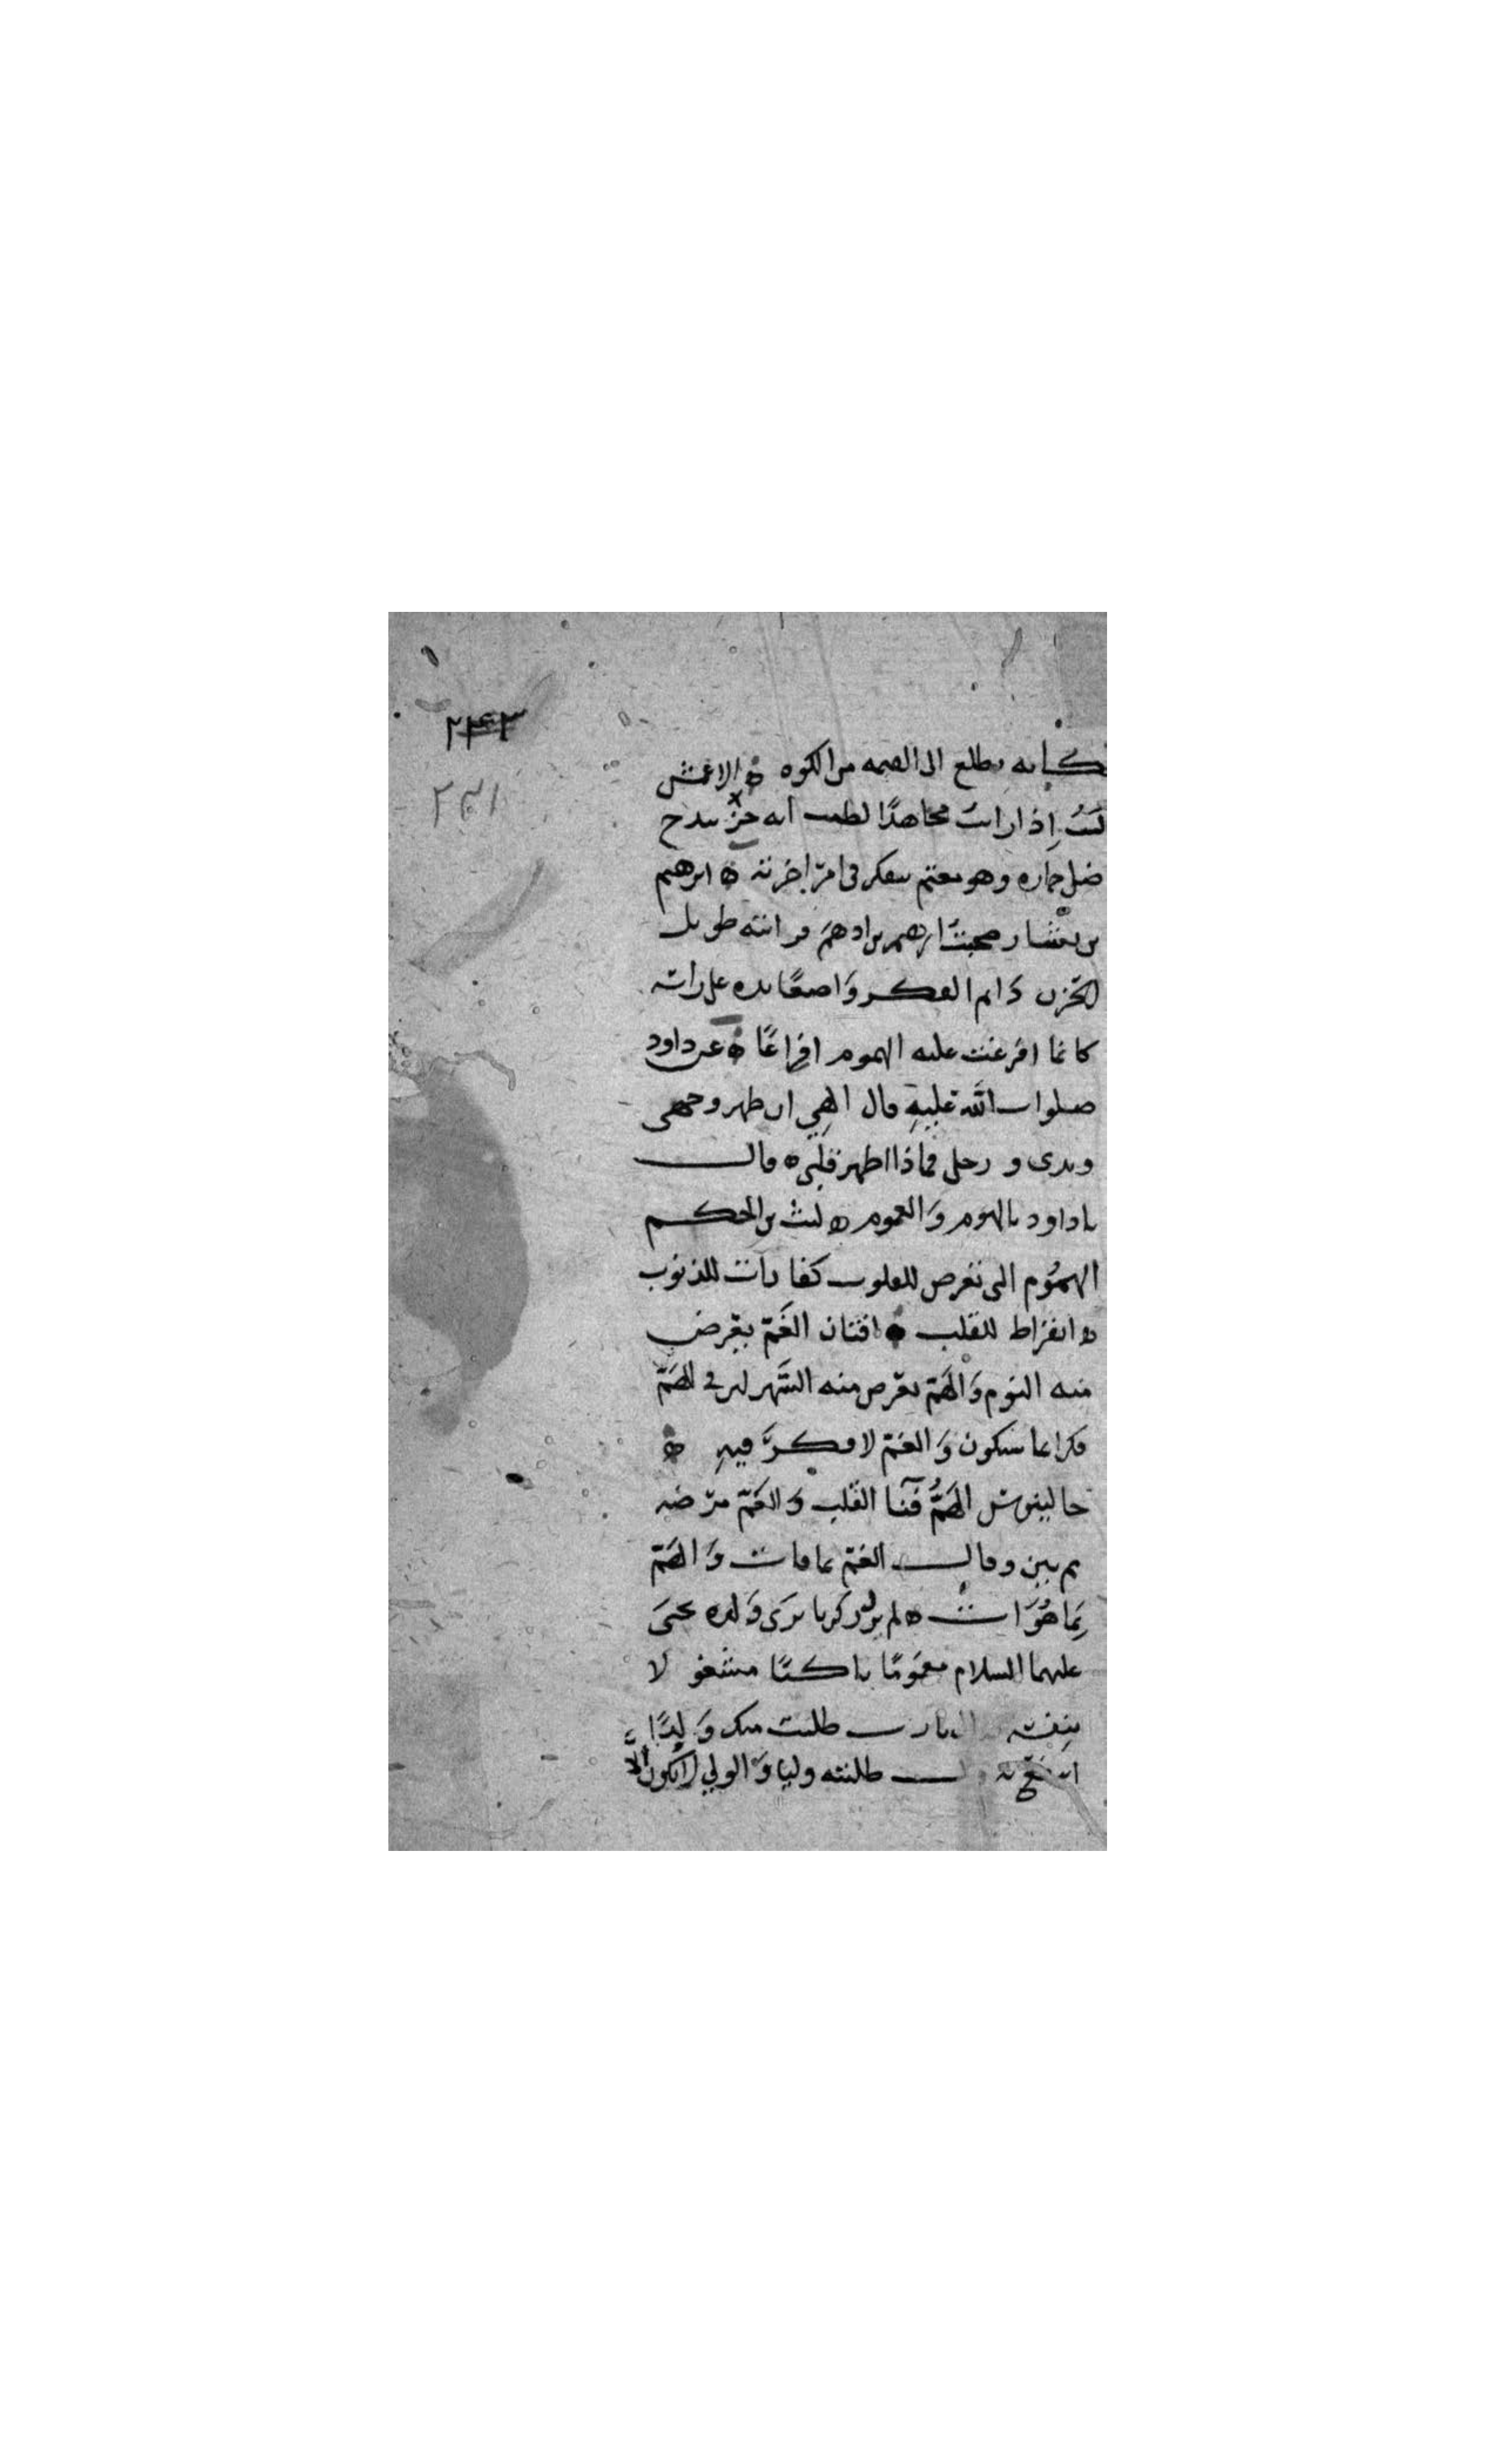 ٢٤٣
٢٣١
كأنه يطلع الى القيمه من الكوه ه الاعمش
كنتُ إذا رايت مجاهدًا لطمت انه خز بندح
ضل حماره وهو مغتم يتفكر في امر اخرته ه ابرهيم
بن بشار صحبت ابرهيم بن ادهم فرايته طويل
الحزن دَايم الفكر وَاضعًا يده على راسه
كانما افرغت عليه الهموم افراغًا ه عن داود
صلوات الله عليه قال الهي امرتني ان اطهر وجهي
ويدي و رجلي فماذا اطهر قلبي ه قال
يا داود بالهموم وَالغموم ه ليث بن الحكم
الهمُوم التي تعرض للقلوب كفارات للذنوب
ه ابقراط للقلب افتان الغَمّ يعرض
منه النوم وَالهَمّ يعرض منه السَّهر لان في الهَمّ
فكرا بما سيكون وَالغمّ لا فكرَ فيهِ ه
جالينوس الهَمُّ فَنآ القلب وَالغمّ مرَضه
ثم بين وقال الغمّ بما فات وَالهَمّ
بِمَا هُوَ ات ه لم يزل زكريا يرَى وَلده يحيىَ
عليهما السلام مغمومًا باكيًا مشغولا
بنفسه يا رب طلبت منك وَلدًا
انتفع به طلبته وليا وَالولي لا يكون الا